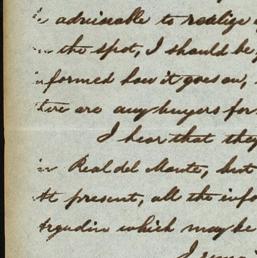 be advisable to realize
on the spot, I should be
informed how it goes on,
there are any buyers for
I hear that they
in Real del Monte, but
At present, all the info
Argudin which may be